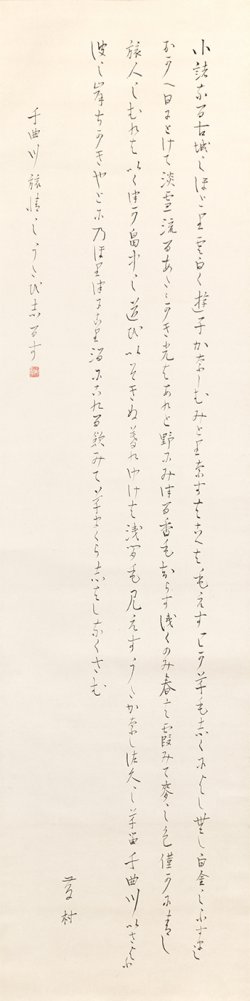 小諸なる古城のほとり雲白く遊子かなしむみとりなすはこへはもえすわか草も志くによし無し白金のふすま
おかへ日にとけて淡雪流るあたゝかき光はあれと野にみつる香も志らす浅くのみ春は霞みて麥の色僅かに青し
旅人のむれはいくつか畠中の道をいそきぬ暮れゆけは浅間も見えすうたかなし佐久の草笛千曲川いさよふ
波の岸ちかきやとにのほりつにこり酒にこれる飲みて草まくら志はしなくさむ
藤村
千曲川旅情のうた